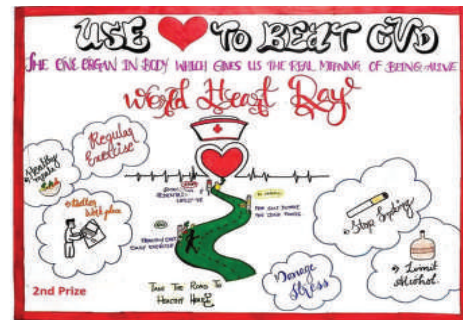 USE TO BEAT CVD
THE ONE ORGAN IN BODY WHICH GIVES US THE REAL MEANING OF BEING ALIVE
World Heart Day
Regular
Exercise
Healthy
Meals
Better
Work place
Stop Smoking
Limit
Alcohol.
Manage
Stress
TAKE THE ROAD TO
HEALTHY HEART
2nd Prize